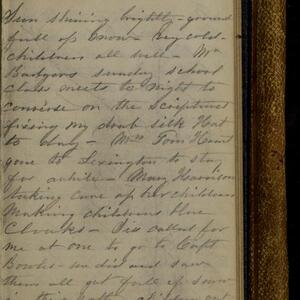 Sun shining brightly - ground
full of snow - very cold -
children all well - Mr
sunday school
class meets to night to
converse on the Scriptures
fixing my drab silk Hat
to day - Mrs Tom Hunt
gone to Lexington to stay
for awhile - Mary Harrison
taking care of her children
Making childrens blue
Cloaks - Sis called for
me at one to go to Capt
we did and saw
them all got full of snow